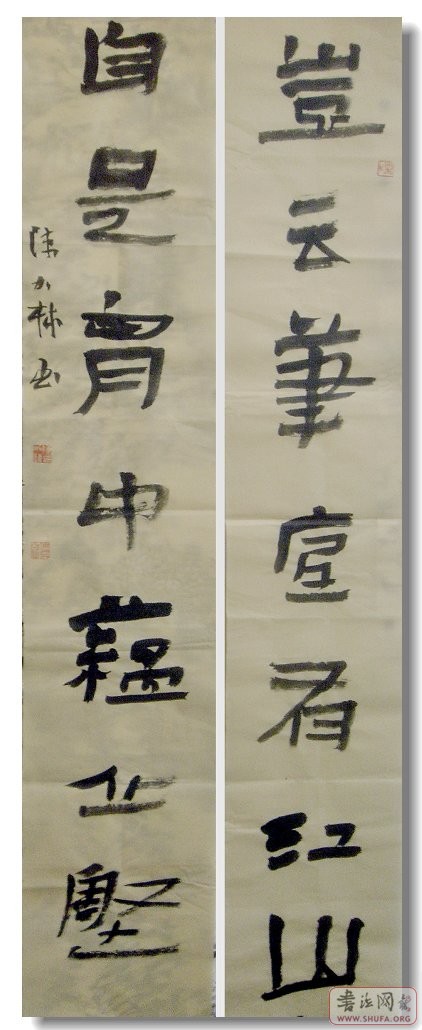 豈云筆底有江山
自是胷中藴丘壑
陈加林书
书法网
WWW.SHUFA.ORG